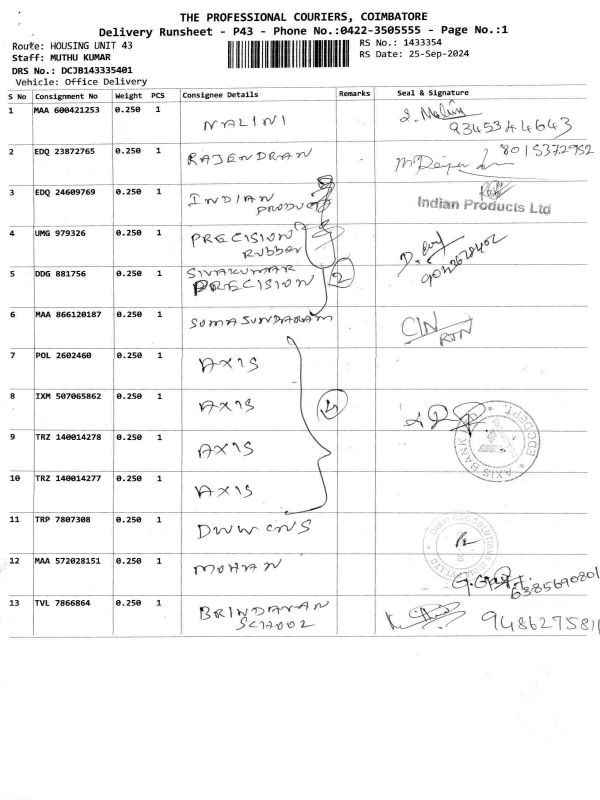 THE PROFESSIONAL COURIERS, COIMBATORE
Delivery Runsheet - P43 - Phone No.:0422-3505555 - Page No.:1
Route: HOUSING UNIT 43
RS No.: 1433354
Staff: MUTHU KUMAR
RS Date: 25-Sep-2024
DRS No.: DCJB143335401
Vehicle: Office Delivery
S No Consignment No Weight PCS Consignee Details Remarks Seal & Signature
1 MAA 600421253 0.250 1 NALINI
9345344643
2 EDQ 23872765 0.250 1 RAJENDRAN 8015372952
3 EDQ 24609769 0.250 1 INDIAN
PRODUCT
Indian Products Ltd
4 UMG 979326 0.250 1 PRECISION
Rubber
5 DDG 881756 0.250 1 SIVAKUMAR
PRECISION 2
6 MAA 866120187 0.250 1 SOMASUNDARAM CIN
RTN
7 POL 2602460 0.250 1 AXIS
8 IXM 507065862 0.250 1 AXIS 4
9 TRZ 140014278 0.250 1 AXIS AXIS BANK
10 TRZ 140014277 0.250 1 AXIS
11 TRP 7807308 0.250 1
12 MAA 572028151 0.250 1 MOHAN
6385690801
13 TVL 7866864 0.250 1 BRINDAVAN
SCHOOL
9486275811